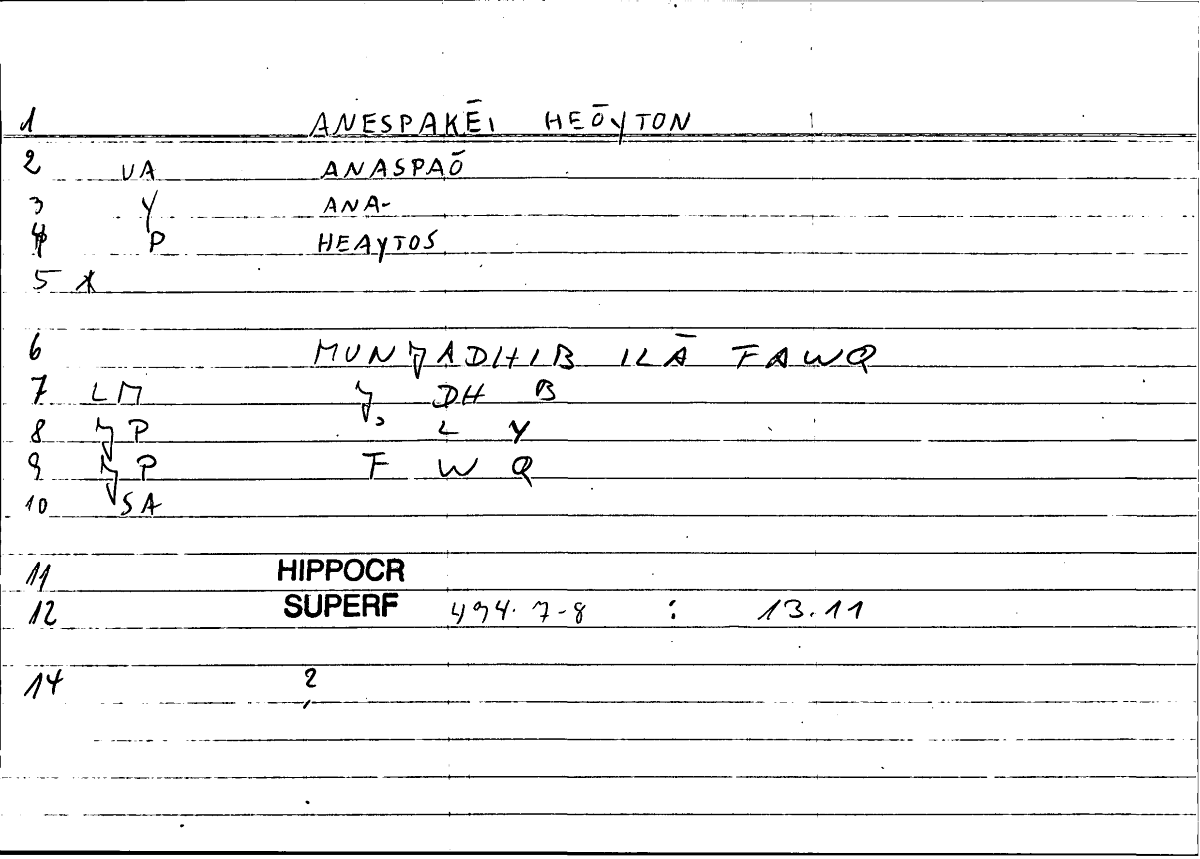 1 ANESPAKĒI HEŌYTON
2 VA ANASPAŌ
3 Y ANA-
4 P HEAYTOS
5 *
6 MUNJADHIB ILĀ FAWQ
7 LM J DH B
8 JP , L Y
9 JP F W Q
10 JSA
11 HIPPOCR
12 SUPERF 494.7-8 : 13.11
14 2